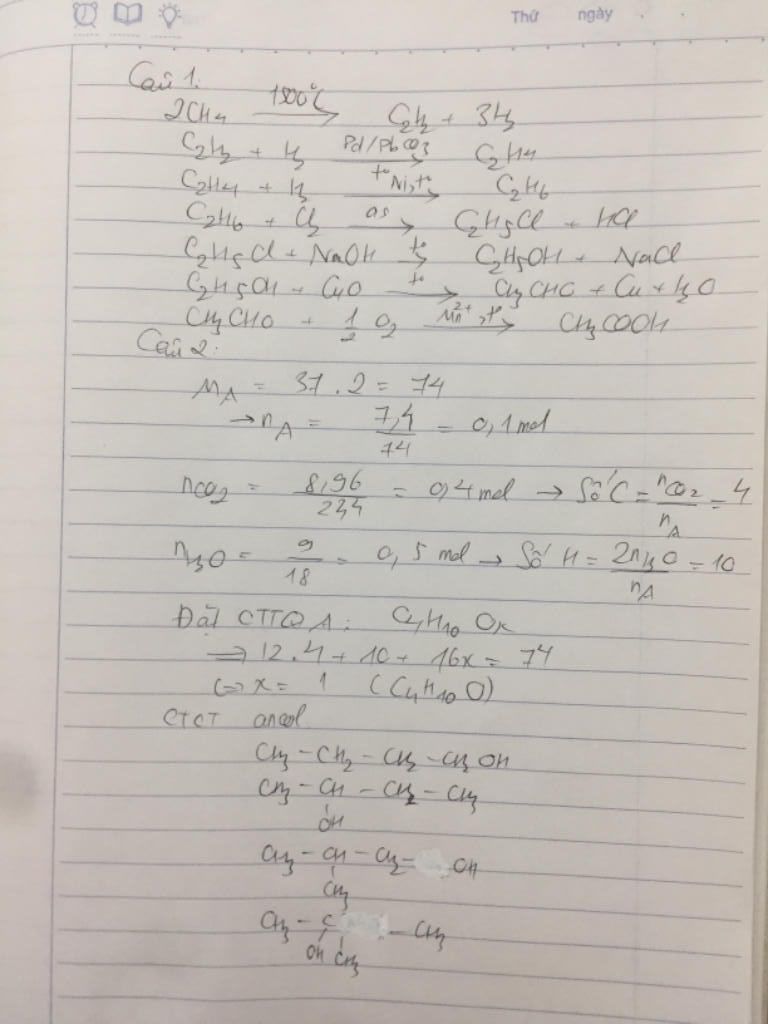 Thứ ngày
Câu 1:
2CH4 1500°C→ C2H2 + 3H2
C2H2 + H2 Pd/PbCO3→ C2H4
C2H4 + H2 t° Ni,t°→ C2H6
C2H6 + Cl2 as→ C2H5Cl + HCl
C2H5Cl + NaOH t°→ C2H5OH + NaCl
C2H5OH + CuO t°→ CH3CHO + Cu + H2O
CH3CHO + 1/2 O2 Mn2+,t°→ CH3COOH
Câu 2:
MA = 37.2 = 74
→ nA = 7,4/74 = 0,1 mol
nCO2 = 8,96/22,4 = 0,4 mol → Số C = nCO2/nA = 4
nH2O = 9/18 = 0,5 mol → Số H = 2nH2O/nA = 10
Đặt CTTQ A: C4H10Ox
⇒ 12.4 + 10 + 16x = 74
⇔ x = 1 (C4H10O)
CTCT ancol
CH3 – CH2 – CH2 – CH2 OH
CH3 – CH – CH2 – CH3
OH
CH3 – CH – CH2 – OH
CH3
CH3 – C – CH3
OH CH3